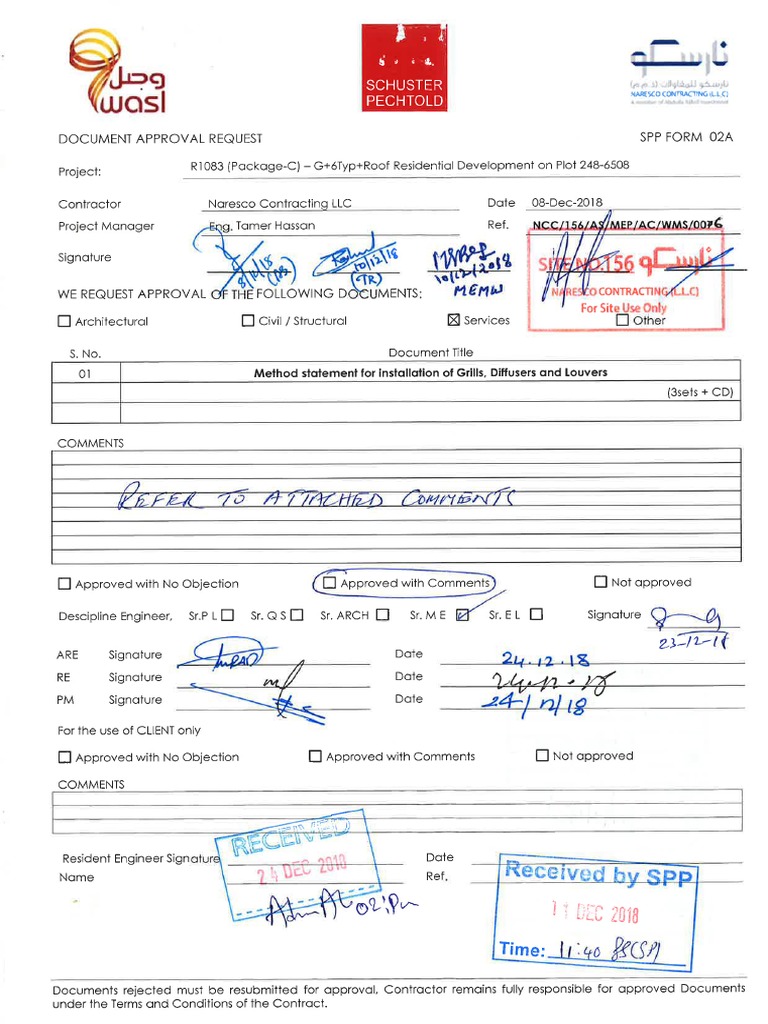 وصل
wasl
SCHUSTER
PECHTOLD
نارسكو
نارسكو للمقاولات (ذ.م.م)
NARESCO CONTRACTING (L.L.C)
DOCUMENT APPROVAL REQUEST
SPP FORM 02A
Project:
R1083 (Package-C) – G+6Typ+Roof Residential Development on Plot 248-6508
Contractor Naresco Contracting LLC Date 08-Dec-2018
Project Manager Eng. Tamer Hassan Ref. NCC/156/AS/MEP/AC/WMS/0076
Signature
8/12/18
10/12/18
(TR)
10/12/2018
MEMW
SITE NO.156 نارسكو
NARESCO CONTRACTING (L.L.C)
For Site Use Only
WE REQUEST APPROVAL OF THE FOLLOWING DOCUMENTS:
Architectural Civil / Structural Services Other
S. No. Document Title
01 Method statement for installation of Grills, Diffusers and Louvers
(3sets + CD)
COMMENTS
REFER TO ATTACHED COMMENTS
Approved with No Objection Approved with Comments Not approved
Descipline Engineer, Sr.P L Sr. Q S Sr. ARCH Sr. M E Sr. E L Signature
23-12-18
ARE Signature Date 24.12.18
RE Signature Date
PM Signature Date 24/12/18
For the use of CLIENT only
Approved with No Objection Approved with Comments Not approved
COMMENTS
RECEIVED
24 DEC 2018
Resident Engineer Signature Date
Name Ref.
Received by SPP
11 DEC 2018
Time: 11:40
Documents rejected must be resubmitted for approval, Contractor remains fully responsible for approved Documents
under the Terms and Conditions of the Contract.